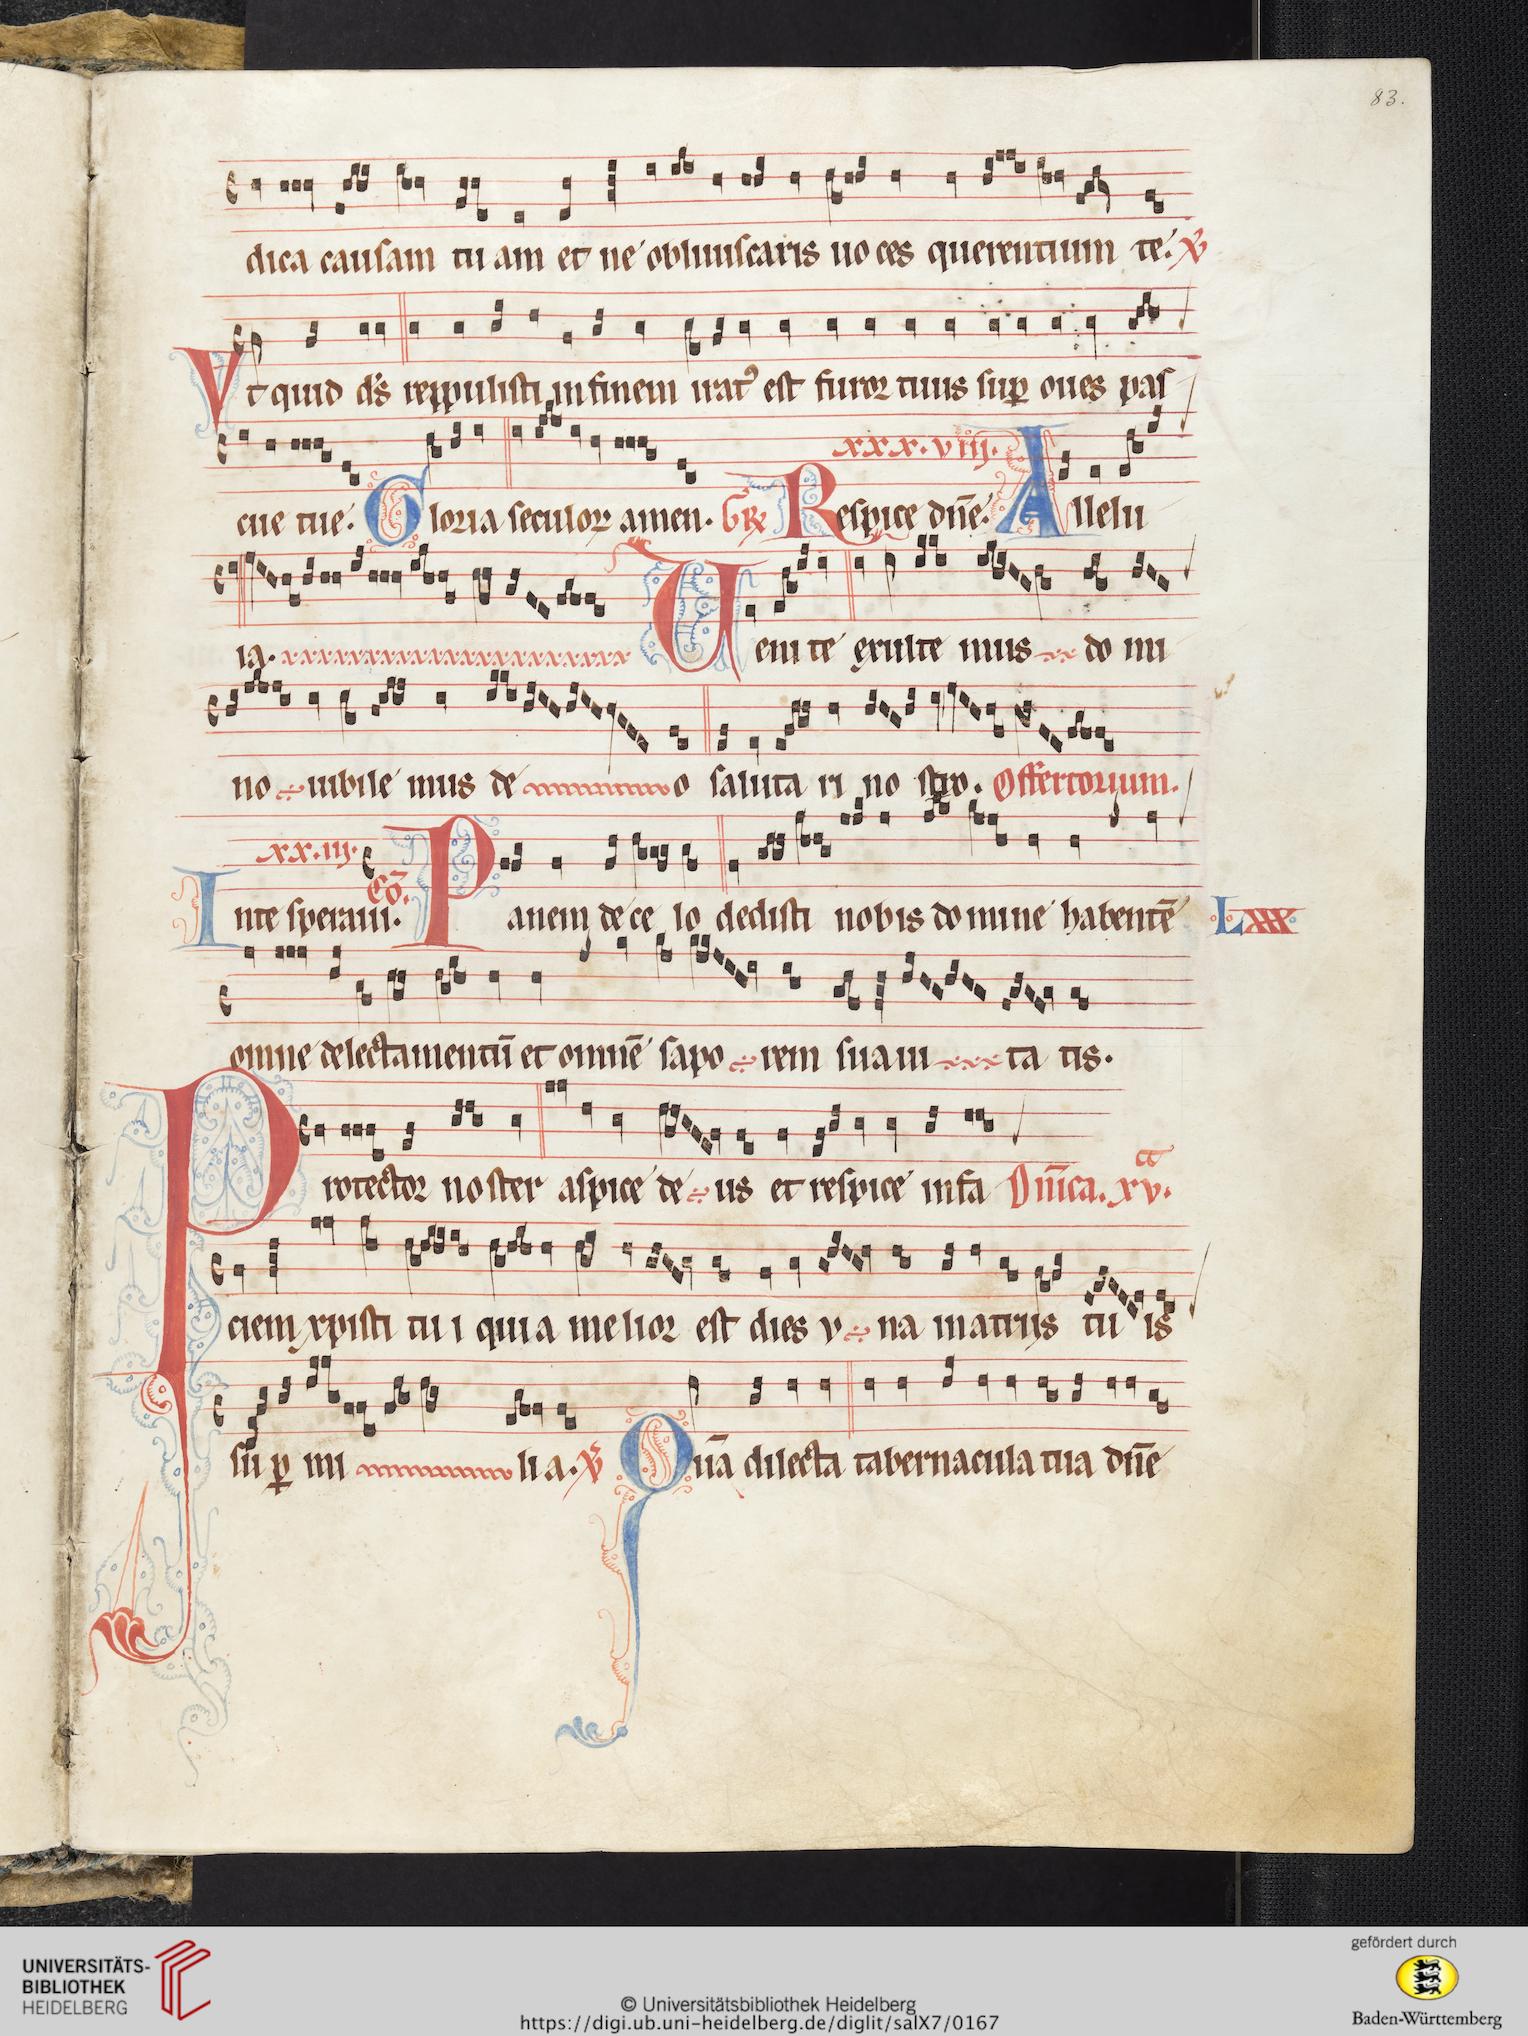 83.
dica causam tu am et ne obliuiscaris uo ces querentium te. V
Vt quid ds reppulisti in finem irat9 est furor tuus sup oues pas
xxx.viij.
cue tue. Gloria seculor amen. Gr Respice dne. Allelu
ia. Ueni te exulte mus do mi
no iubile mus de o saluta ri no stro. Offertorium.
xx.iij. Co.
In te speraui. Panem de ce lo dedisti nobis domine habentē LXXX
omne delectamentū et omnē sapo rem suaui ta tis.
Protector noster aspice de us et respice in fa Dnica. xv.
ciem xpisti tu i quia melior est dies v na in atrijs tu is
sup mi li a. V Quā dilecta tabernacula tua dne
UNIVERSITÄTS-
BIBLIOTHEK
HEIDELBERG
© Universitätsbibliothek Heidelberg
https://digi.ub.uni-heidelberg.de/diglit/salX7/0167
gefördert durch
Baden-Württemberg